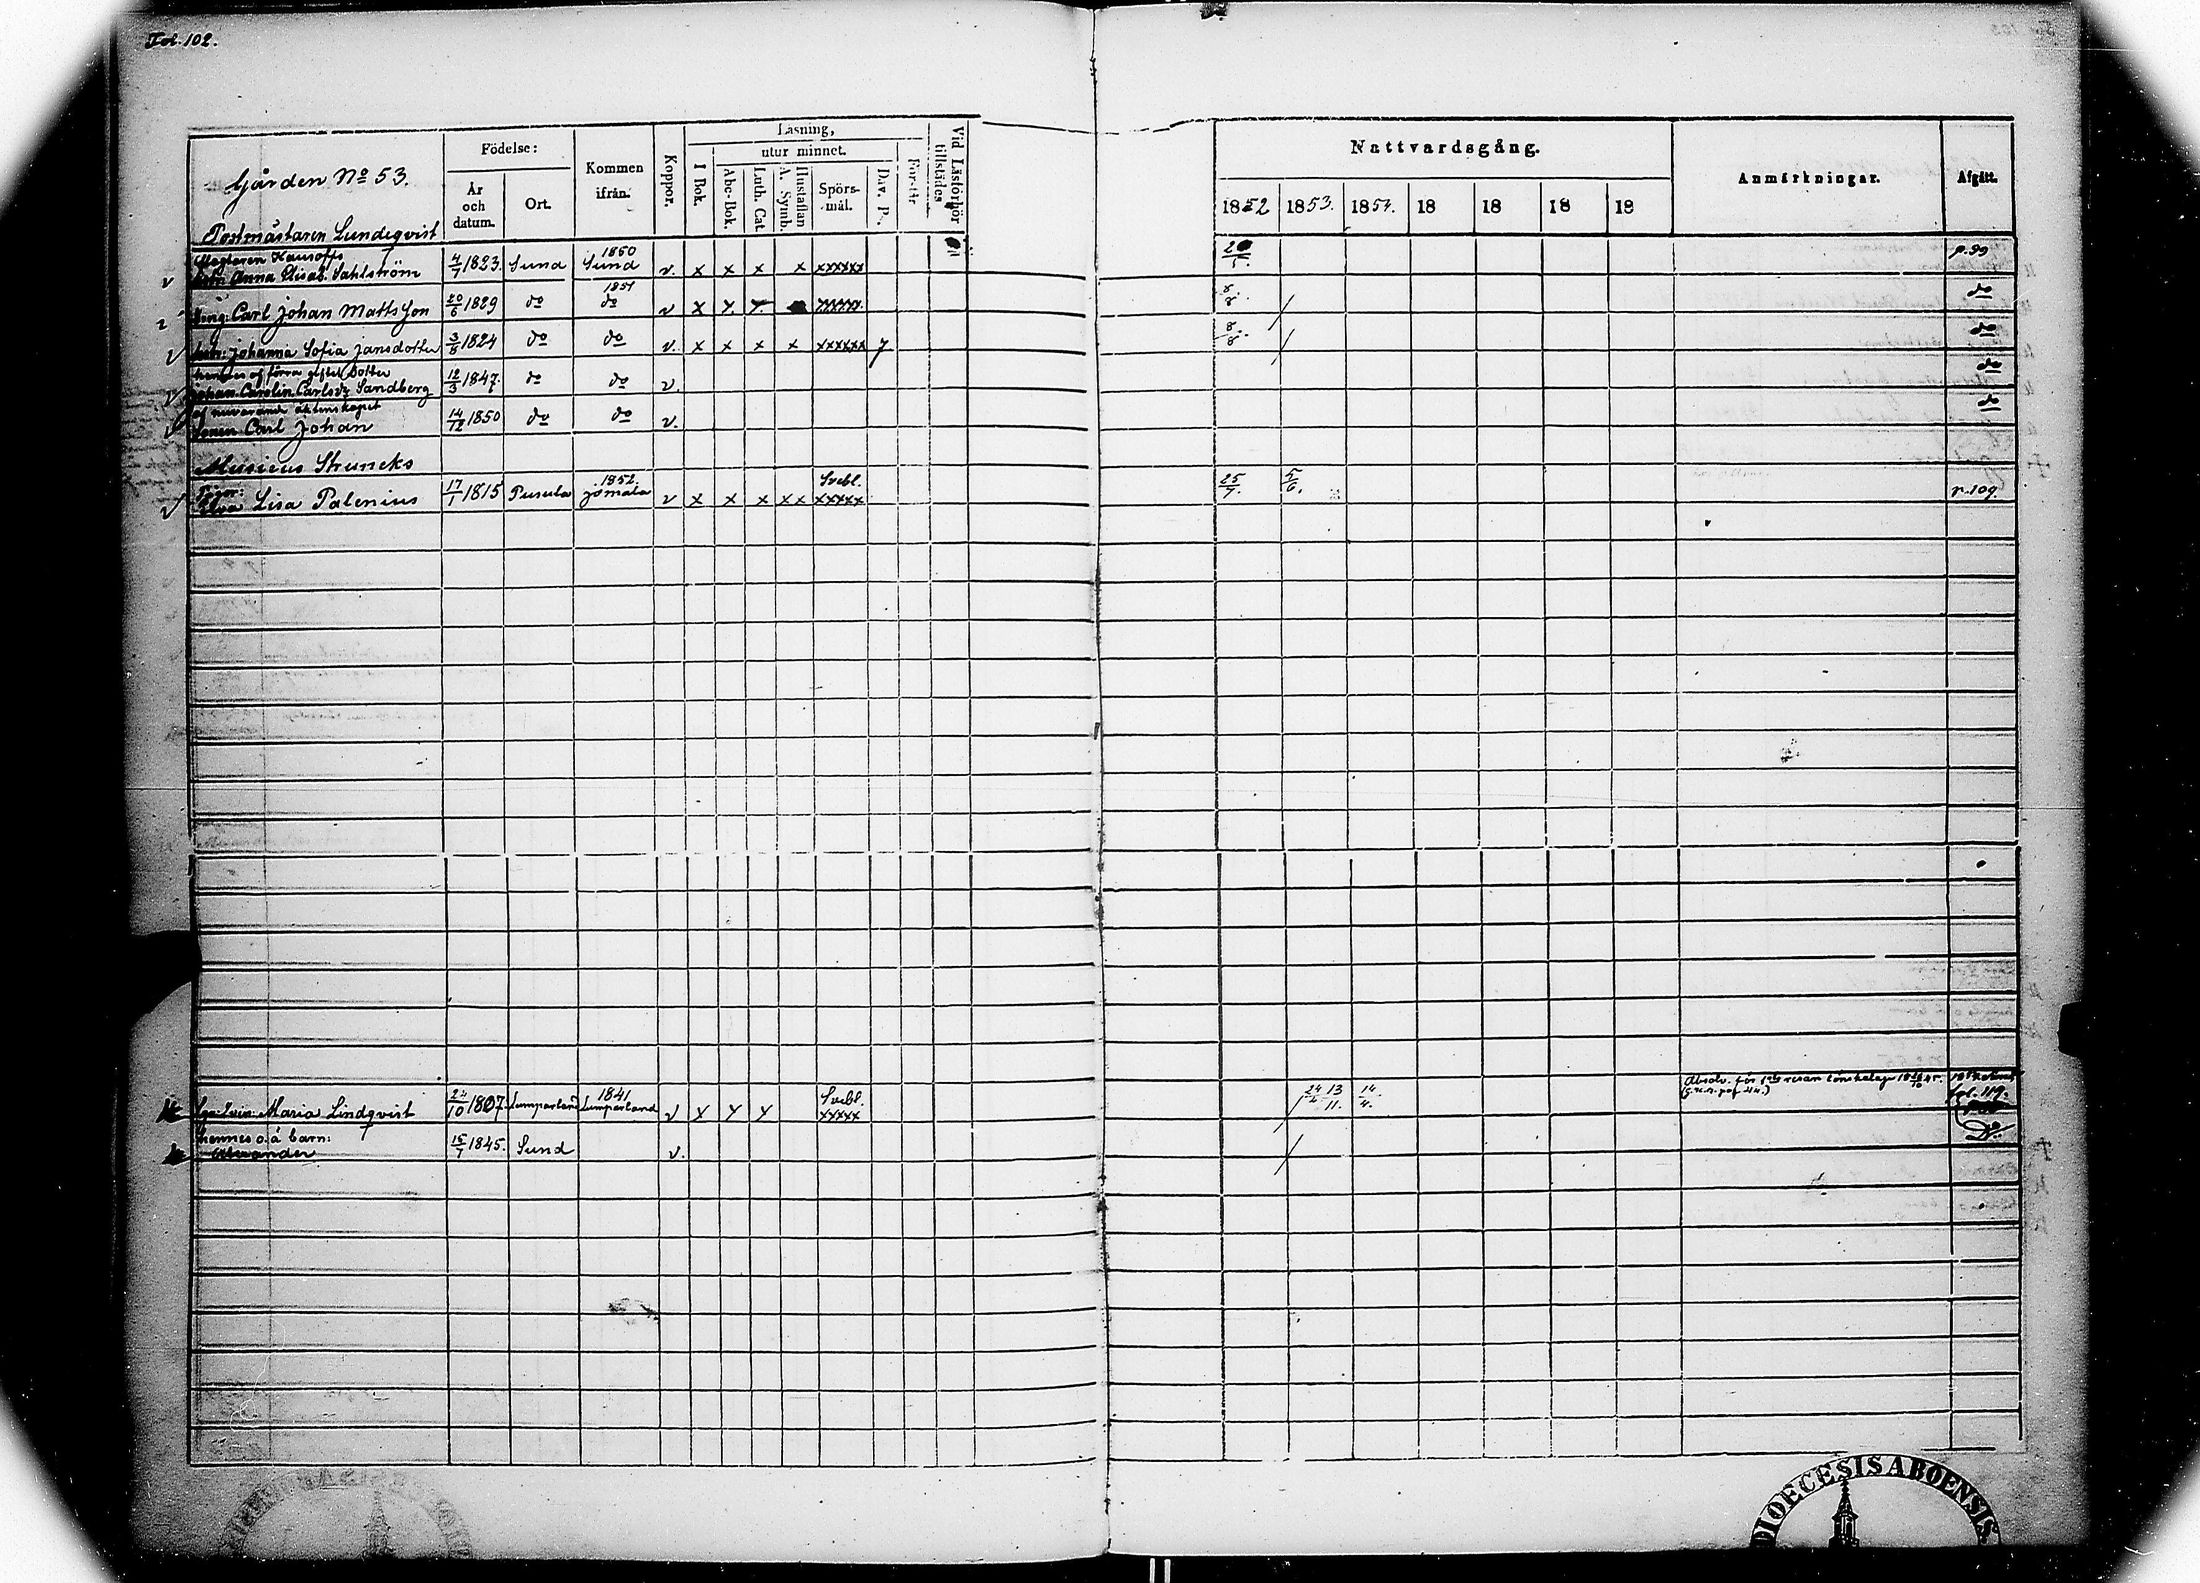 Fol. 102.
Gården No 53.
Födelse:
År och datum.
Ort.
Kommen ifrån.
Koppor.
Läsning,
I Bok.
utur minnet.
Abc-Bok.
Luth. Cat.
A. Symb.
Hustaflan
Spörsmål.
Dav. Ps.
Förstår
Vid Läsförhör tillstädes
Nattvardsgång.
1852 1853. 1854. 18 18 18 18
Anmärkningar.
Afgått.
Postmästaren Lundeqvist
1850
Anna Elisab. Sahlström 4/7 1823. Sund Sund v. x x x x xxxxxx p. 99
1851
Carl Johan Mattsson 20/6 1829 do do v x x x xxxxx 8/8 do
Johanna Sofia Jansdotter 3/8 1824 do do v. x x x x xxxxxx 7 8/8 do
hennes af förra giftet Dotter
Johan. Carolin. Carlsdr Sandberg 12/3 1847. do do v. do
af nuvarande äktenskapet
Sonen Carl Johan 14/12 1850 do do v. do
Musicus Struncks
1852. Svebl.
Lisa Palenius 17/1 1815 Pusula Jomala v x x x x x xxxxx 25/7. 5/6. p. 109
1841 Svebl.
Maria Lindqvist 24/10 1807. Lumparland Lumparland v x x x xxxxx 24/4 13/11. 14/4.
Absolv. för 1sta resan lönskaläge
fol. 119.
hennes o. ä barn:
Alexander 15/7 1845. Sund v. Do
DIOECESIS ABOENSIS